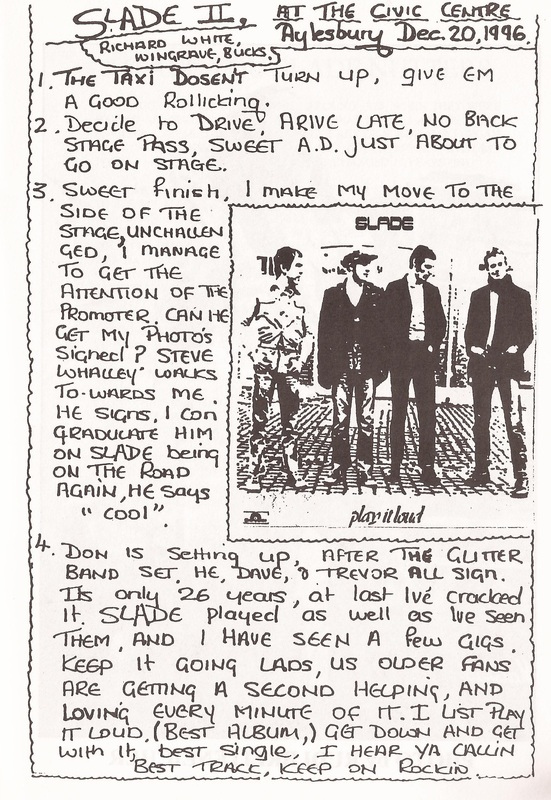 SLADE II, AT THE CIVIC CENTRE
Aylesbury Dec. 20, 1996.
RICHARD WHITE,
WINGRAVE, BUCKS.
1. THE TAXI DOSENT TURN UP, GIVE EM
A GOOD Rollicking.
2. Decide to DRIVE, ARIVE LATE, NO BACK
STAGE PASS, SWEET A.D. JUST ABOUT TO
GO ON STAGE.
3. SWEET finish, I MAKE MY MOVE TO THE
SIDE OF THE
STAGE, UNCHALLEN
GED, I MANAGE
TO GET THE
ATTENTION OF THE
PROMOTER. CAN HE
GET MY PHOTO'S
Signed? STEVE
WHALLEY WALKS
TO-WARDS ME.
HE SIGNS, I CON
GRADULATE HIM
ON SLADE being
ON THE ROAD
AGAIN, HE Says
"COOL".
SLADE
play it loud
4. DON IS Setting up, AFTER THE GLITTER
BAND SET, HE, DAVE, & TREVOR ALL SIGN.
Its only 26 years, at last Ive cracked
it. SLADE played as well as Ive Seen
THEM, AND I HAVE SEEN A few GIGS.
KEEP It GOING LADS, US OLDER FANS
ARE GETTING A SECOND HELPING, AND
LOVING EVERY MINUTE OF IT. I LIST PLAY
IT LOUD, (BEST ALBUM,) GET DOWN AND GET
with it, best single, I HEAR YA CALLIN
BEST TRACK, KEEP ON ROCKIN.